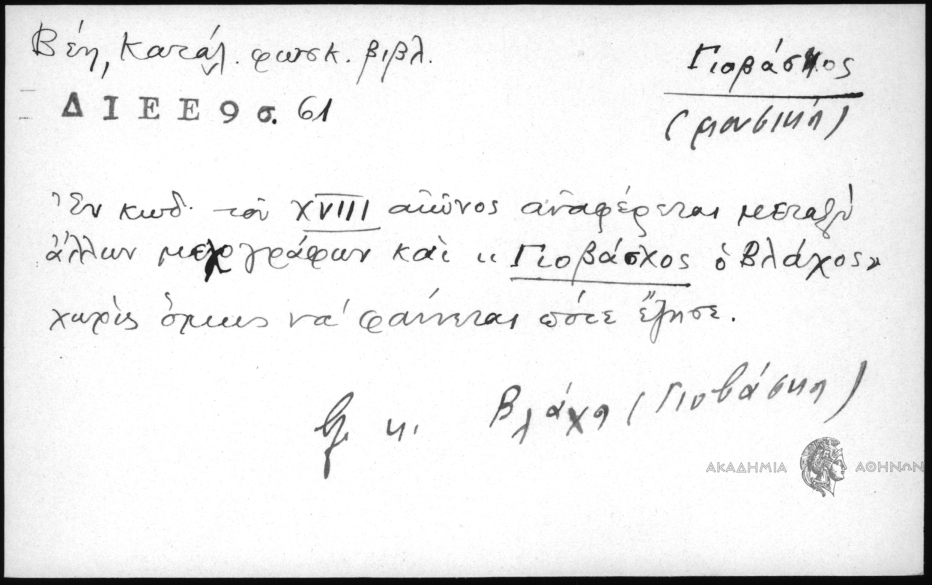 Βέη, Κατάλ. φωσκ. βιβλ.
Γιοβάσκος
ΔΙΕΕ 9 σ. 61
(μουσική)
Ἐν κωδ. τοῦ XVIII αἰῶνος ἀναφέρεται μεταξὺ
ἄλλων μελογράφων καὶ «Γιοβάσχος ὁ Βλάχος»
χωρὶς ὅμως νὰ φαίνεται πότε ἔζησε.
κ. Βλάχη (Γιοβάσκη)
ΑΚΑΔΗΜΙΑ ΑΘΗΝΩΝ